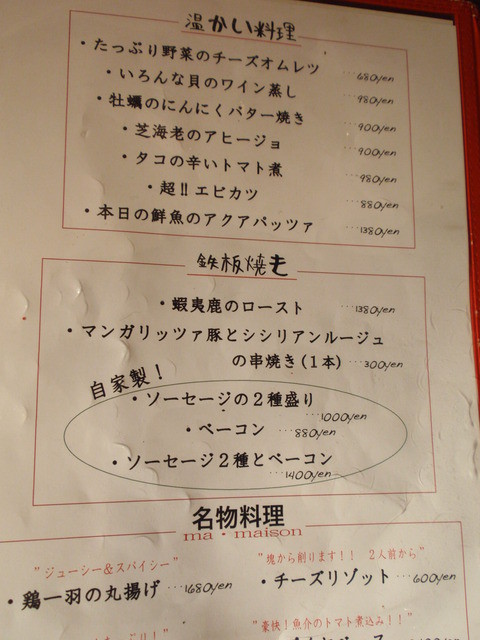 温かい料理
・たっぷり野菜のチーズオムレツ …680yen
・いろんな貝のワイン蒸し …980yen
・牡蠣のにんにくバター焼き …900yen
・芝海老のアヒージョ …900yen
・タコの辛いトマト煮 …980yen
・超!!エビカツ …880yen
・本日の鮮魚のアクアパッツァ …1380yen
鉄板焼き
・蝦夷鹿のロースト …1380yen
・マンガリッツァ豚とシシリアンルージュ
の串焼き(1本) …300yen
自家製!
・ソーセージの2種盛り …1000yen
・ベーコン …880yen
・ソーセージ2種とベーコン …1400yen
名物料理
ma・maison
"ジューシー&スパイシー"
・鶏一羽の丸揚げ …1680yen
"塊から削ります!! 2人前から"
・チーズリゾット …600yen
"豪快!魚介のトマト煮込み!!"